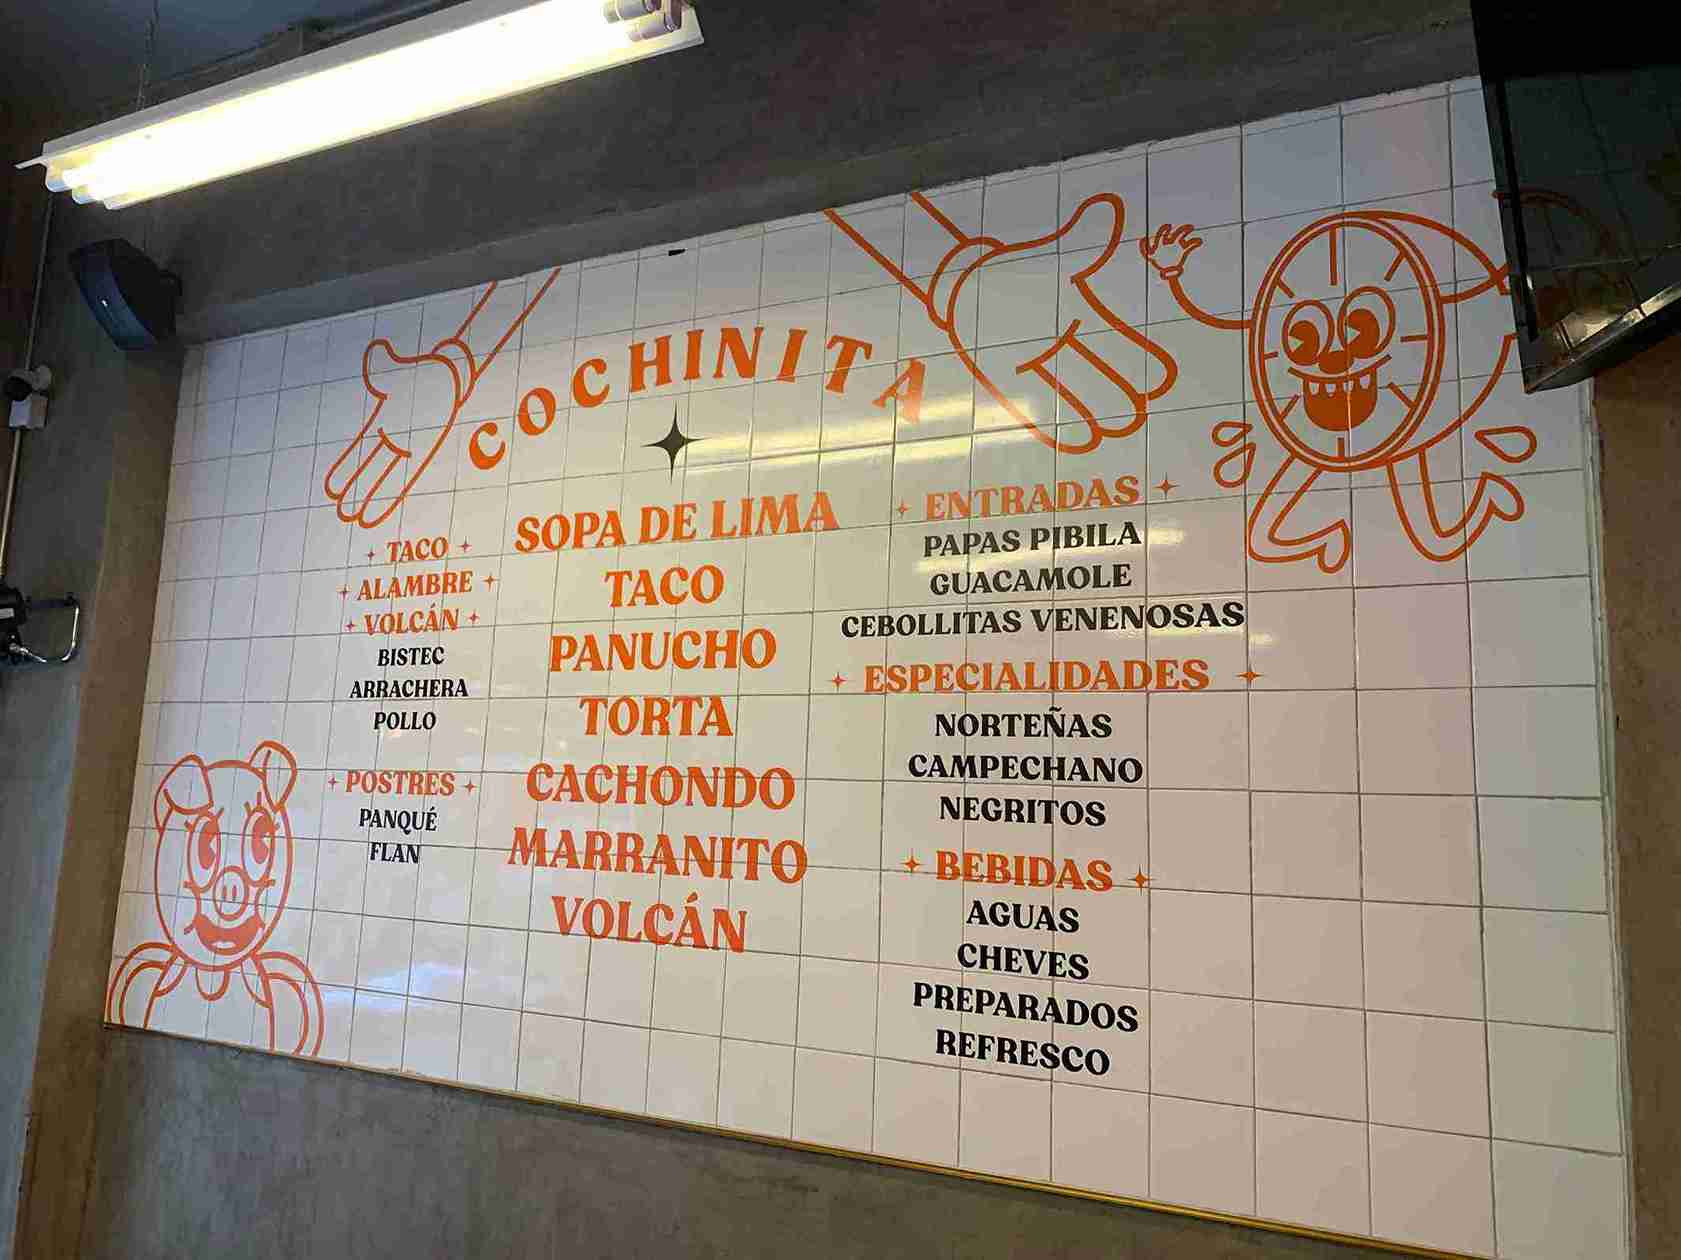 COCHINITA
TACO
ALAMBRE
VOLCÁN
BISTEC
ARRACHERA
POLLO
POSTRES
PANQUÉ
FLAN
SOPA DE LIMA
TACO
PANUCHO
TORTA
CACHONDO
MARRANITO
VOLCÁN
ENTRADAS
PAPAS PIBILA
GUACAMOLE
CEBOLLITAS VENENOSAS
ESPECIALIDADES
NORTEÑAS
CAMPECHANO
NEGRITOS
BEBIDAS
AGUAS
CHEVES
PREPARADOS
REFRESCO